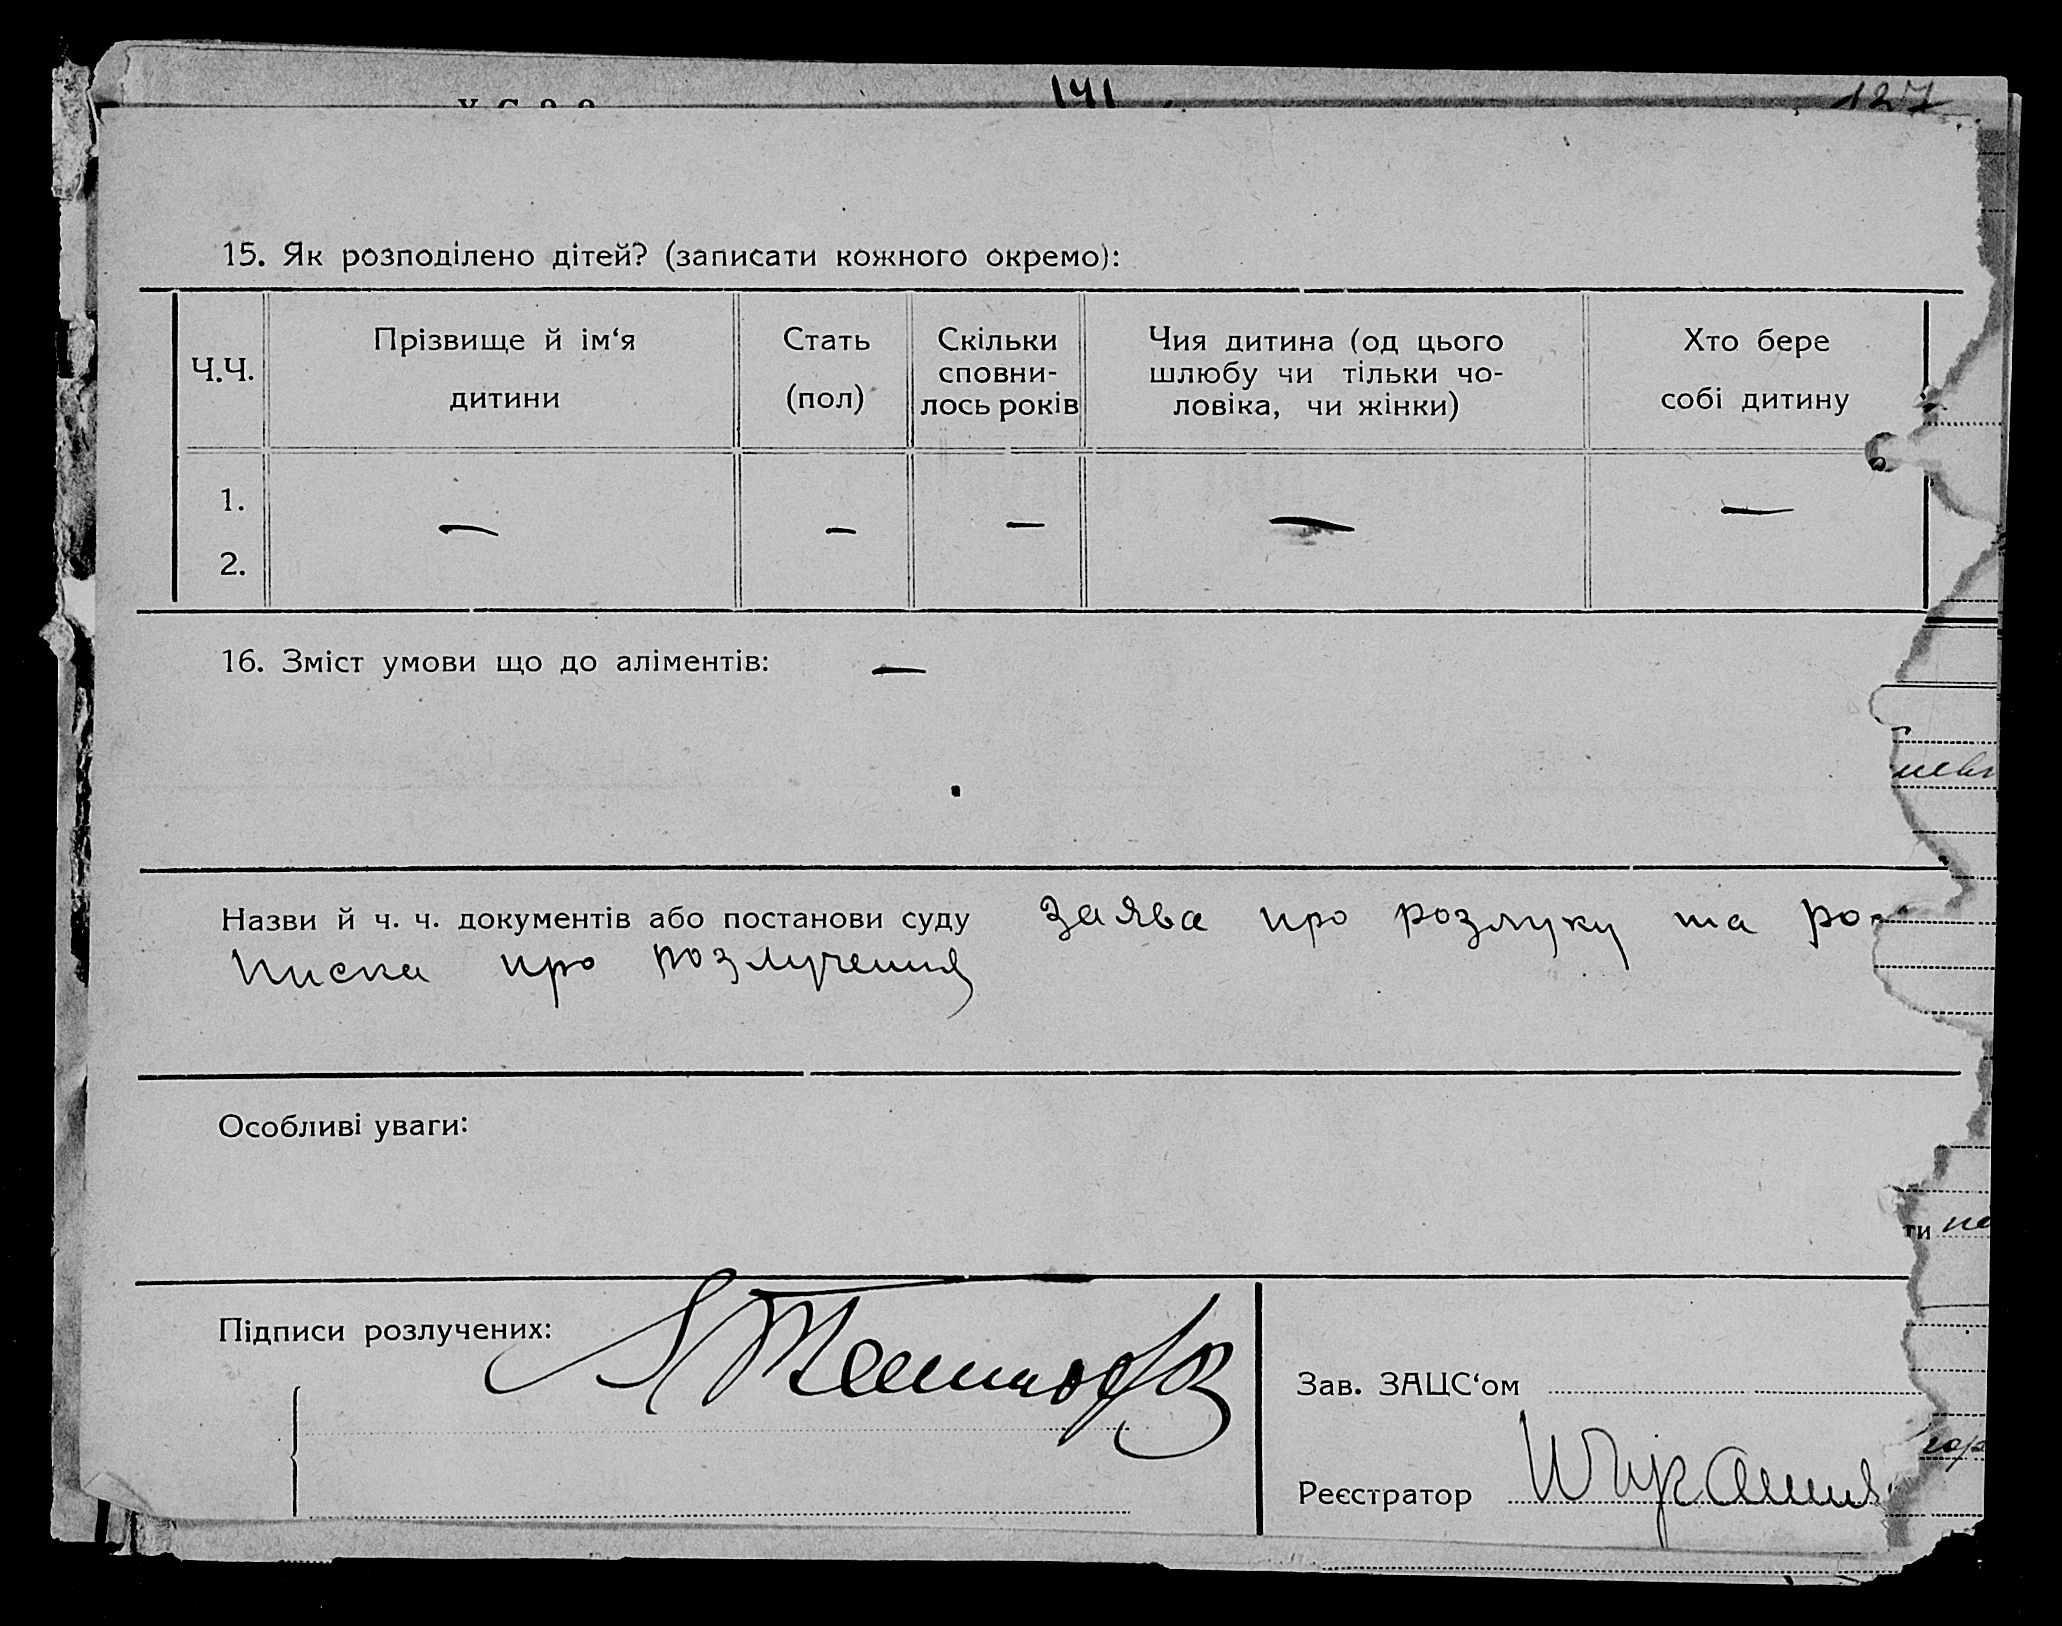 141
127
15. Як розподілено дітей? (записати кожного окремо):
Ч.Ч.
Прізвище й ім‘я
дитини
Стать
(пол)
Скільки
сповни-
лось років
Чия дитина (од цього
шлюбу чи тільки чо-
ловіка, чи жінки)
Хто бере
собі дитину
1. — — — — —
2.
16. Зміст умови що до аліментів: —
Назви й ч. ч. документів або постанови суду заява про розлуку та ро-
писка про розлучення
Особливі уваги:
Підписи розлучених:
Зав. ЗАЦС‘ом
Реєстратор
ти